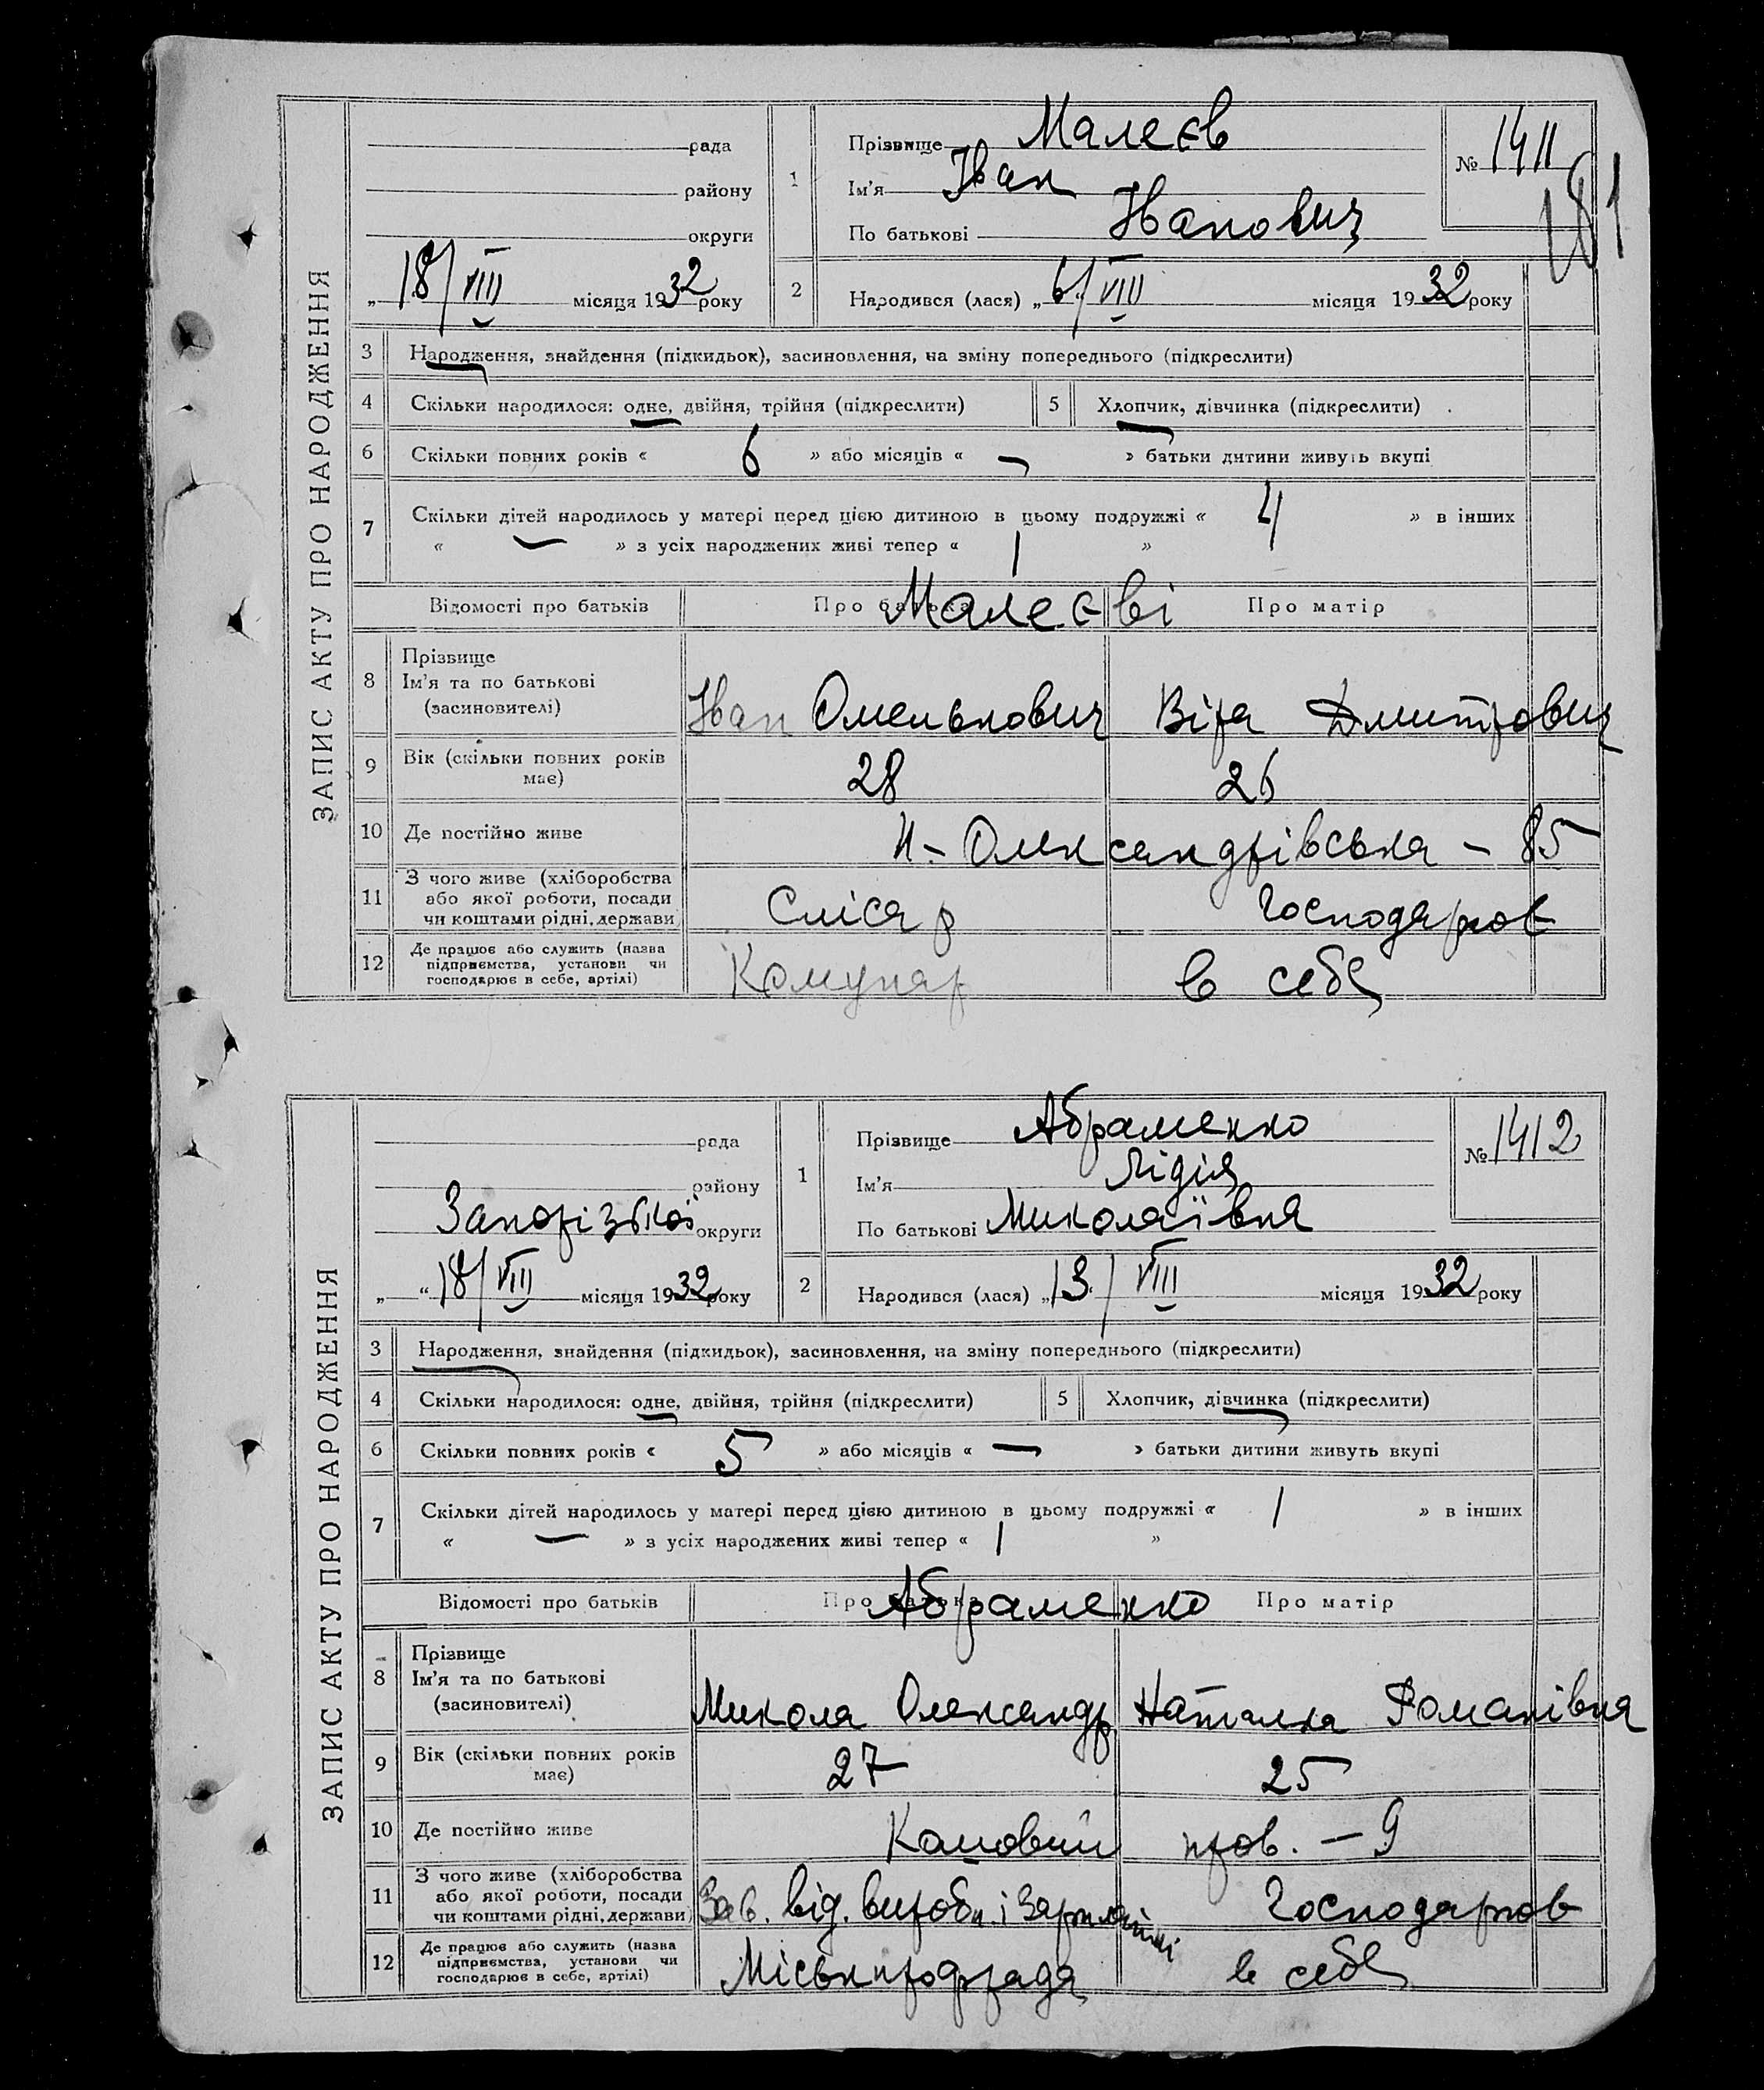 ЗАПИС АКТУ ПРО НАРОДЖЕННЯ
рада
району
округи
„18/VIII місяця 1932 року
1
Прізвище Малеєв
Ім'я Іван
По батькові Іванович
№ 1411
181
2
Народився (лася) „6/VIII місяця 1932 року
3 Народження, знайдення (підкидьок), засиновлення, на зміну попереднього (підкреслити)
4 Скільки народилося: одне, двійня, трійня (підкреслити)
5 Хлопчик, дівчинка (підкреслити)
6 Скільки повних років « 6 » або місяців « — » батьки дитини живуть вкупі
7 Скільки дітей народилось у матері перед цією дитиною в цьому подружжі « 4 » в інших
« — » з усіх народжених живі тепер « 1 »
Відомості про батьків Про батька Про матір
Малеєві
8 Прізвище
Ім'я та по батькові
(засиновителі)
Іван Омелькович Віра Дмитрович
9 Вік (скільки повних років
має)
28 26
10 Де постійно живе Н-Олександрівська — 85
11 З чого живе (хліборобства
або якої роботи, посади
чи коштами рідні, держави
Слюсар Господарюв
12 Де працює або служить (назва
підприємства, установи чи
господарює в себе, артілі)
Комунар в себе
ЗАПИС АКТУ ПРО НАРОДЖЕННЯ
рада
району
Запорізької округи
„ “18/VIII місяця 1932 року
1
Прізвище Абраменко
Ім'я Лідія
По батькові Миколаївна
№ 1412
2
Народився (лася) „13/VIII місяця 1932 року
3 Народження, знайдення (підкидьок), засиновлення, на зміну попереднього (підкреслити)
4 Скільки народилося: одне, двійня, трійня (підкреслити)
5 Хлопчик, дівчинка (підкреслити)
6 Скільки повних років « 5 » або місяців « — » батьки дитини живуть вкупі
7 Скільки дітей народилось у матері перед цією дитиною в цьому подружжі « 1 » в інших
« — » з усіх народжених живі тепер « 1 »
Відомості про батьків Про батька Про матір
Абраменко
8 Прізвище
Ім'я та по батькові
(засиновителі)
Микола Олександр Наталка Романівна
9 Вік (скільки повних років
має)
27 25
10 Де постійно живе пров. — 9
11 З чого живе (хліборобства
або якої роботи, посади
чи коштами рідні, держави
Зав. від. виробн. і Господарюв
12 Де працює або служить (назва
підприємства, установи чи
господарює в себе, артілі)
Міськпрофрада в себе